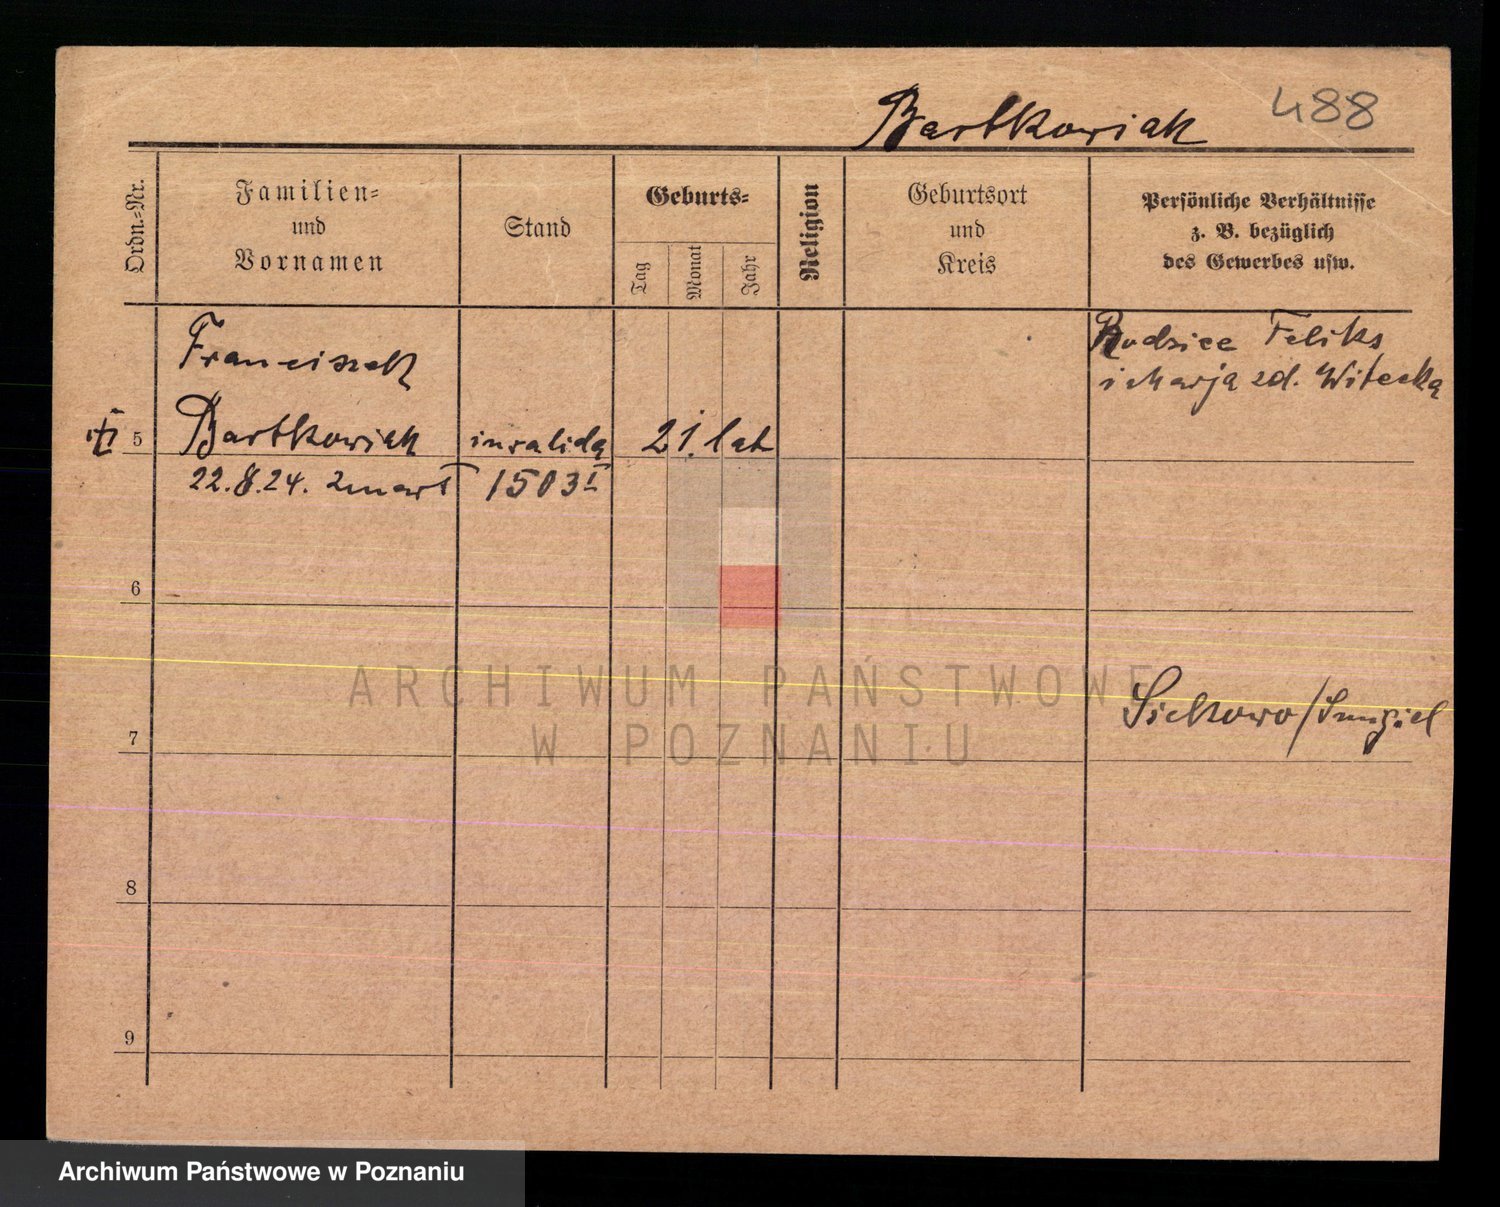 Bartkowiak 488
Ordn.-Nr.
Familien-
und
Vornamen
Stand
Geburts-
Tag
Monat
Jahr
Religion
Geburtsort
und
Kreis
Persönliche Verhältnisse
z. B. bezüglich
des Gewerbes usw.
Franciszek
Rodzice Feliks
i Marja zd. Witecka
5 Bartkowiak inwalida 21. lat
22.8.24. zmarł 1503 I
6
ARCHIWUM PAŃSTWOWE
W POZNANIU
Siekowo/Szmigiel
7
8
9
Archiwum Państwowe w Poznaniu